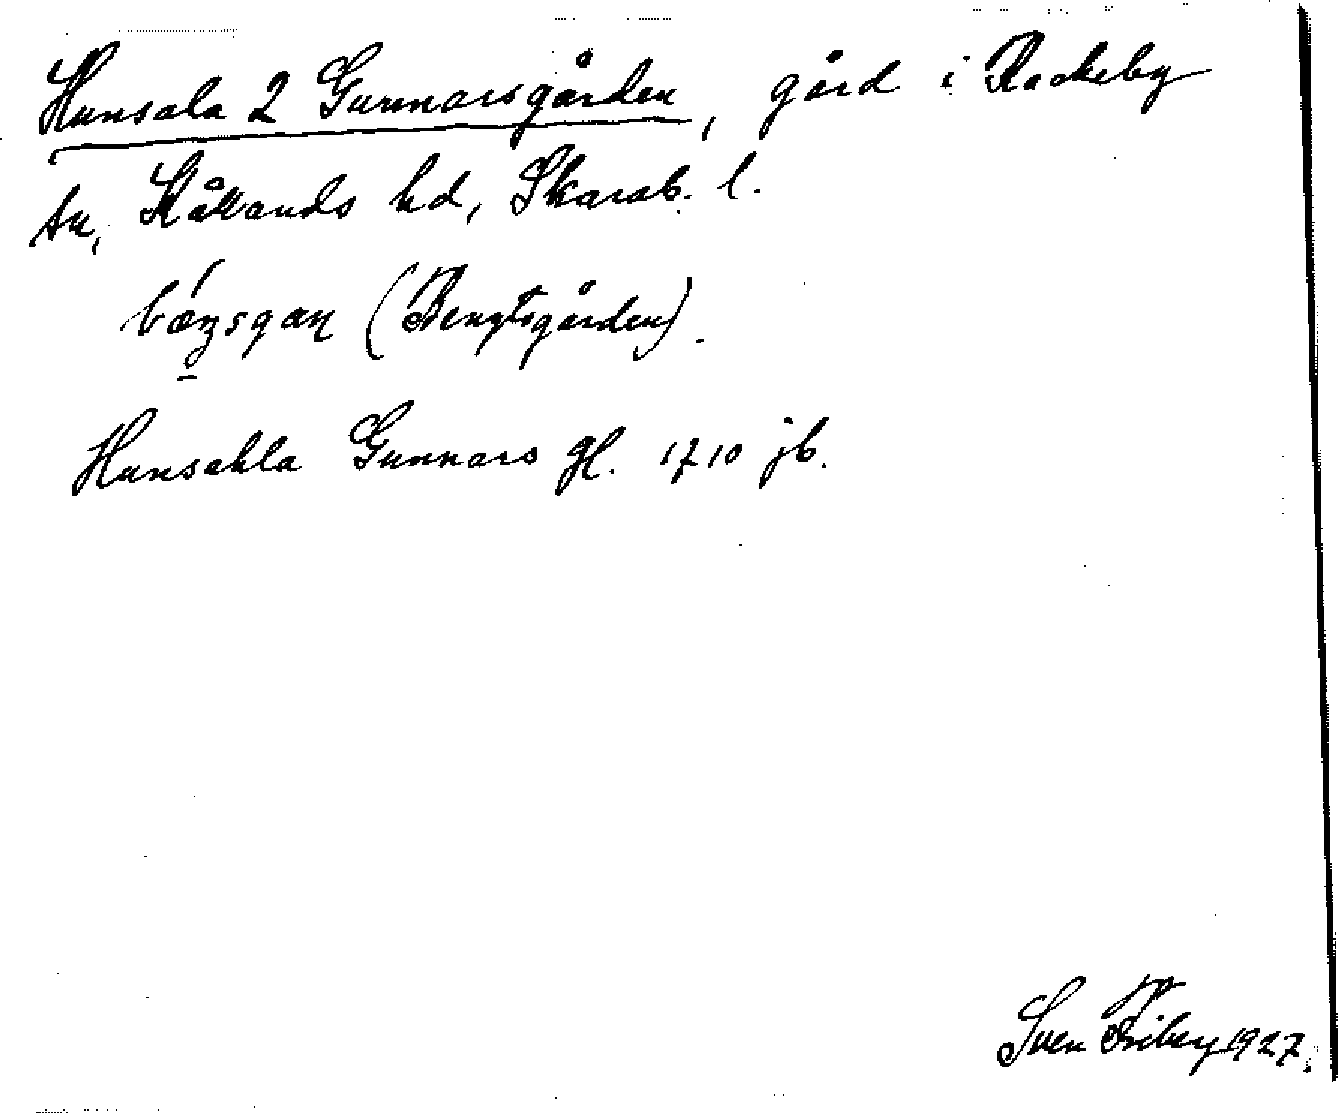 Hunsala 2 Gunnarsgården, gård i Rackeby
sn, Kållands hd, Skarab. l.
(Bengtsgården).
Hunsahla Gunnars gl. 1710 jb.
Sven Friberg 1927.